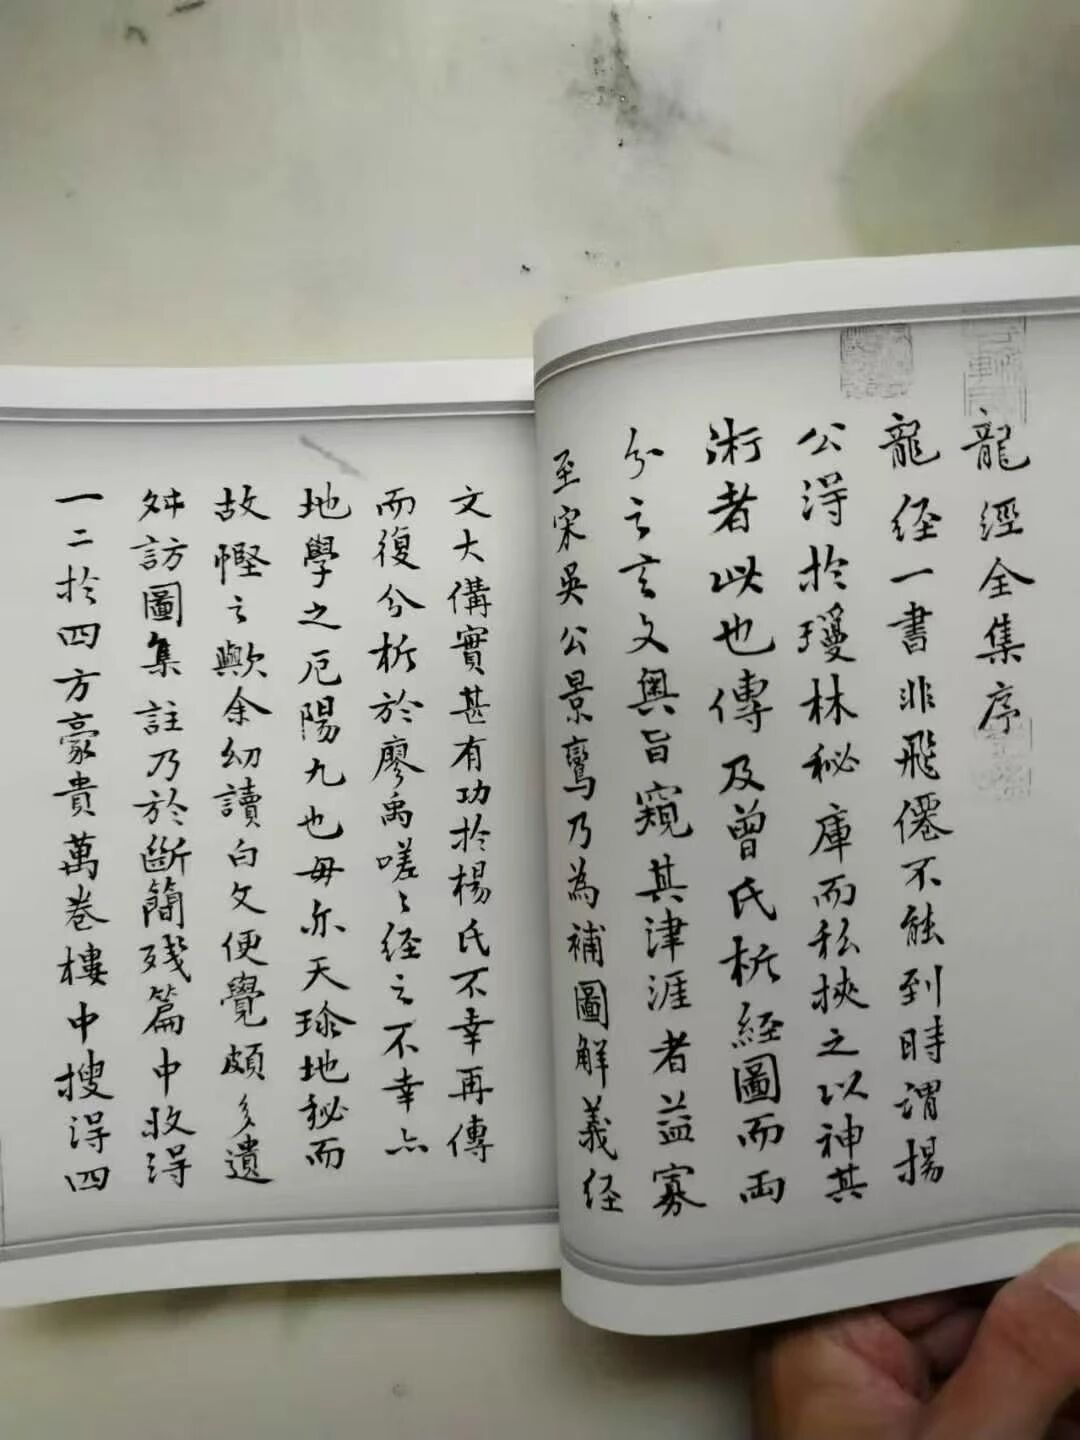 龍經全集序
龍經一書非飛僊不能到時謂楊
公得於瓊林秘庫而私挾之以神其
術者以此也傳及曾氏析經圖而両
分之言文奥旨窺其津涯者益寡
至宋吳公景鸞乃為補圖解義経
文大備實甚有功於楊氏不幸再傳
而復分析於廖禹嗟〻經之不幸亦
地學之厄陽九也毋亦天珍地秘而
故慳之歟余幼讀白文便覺頗多遺
舛訪圖集註乃於斷簡殘篇中收得
一二於四方豪貴萬卷樓中搜得四